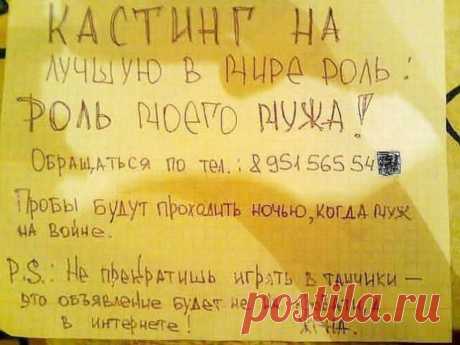 КАСТИНГ НА
ЛУЧШУЮ В МИРЕ РОЛЬ:
РОЛЬ МОЕГО МУЖА!
ОБРАЩАТЬСЯ ПО ТЕЛ.: 8 951 565 54
ПРОБЫ БУДУТ ПРОХОДИТЬ НОЧЬЮ, КОГДА МУЖ
НА ВОЙНЕ.
P.S.: НЕ ПРЕКРАТИШЬ ИГРАТЬ В ТАНЧИКИ —
ЭТО ОБЪЯВЛЕНИЕ БУДЕТ НЕ НА
В ИНТЕРНЕТЕ! ЖЕНА.
postila.ru